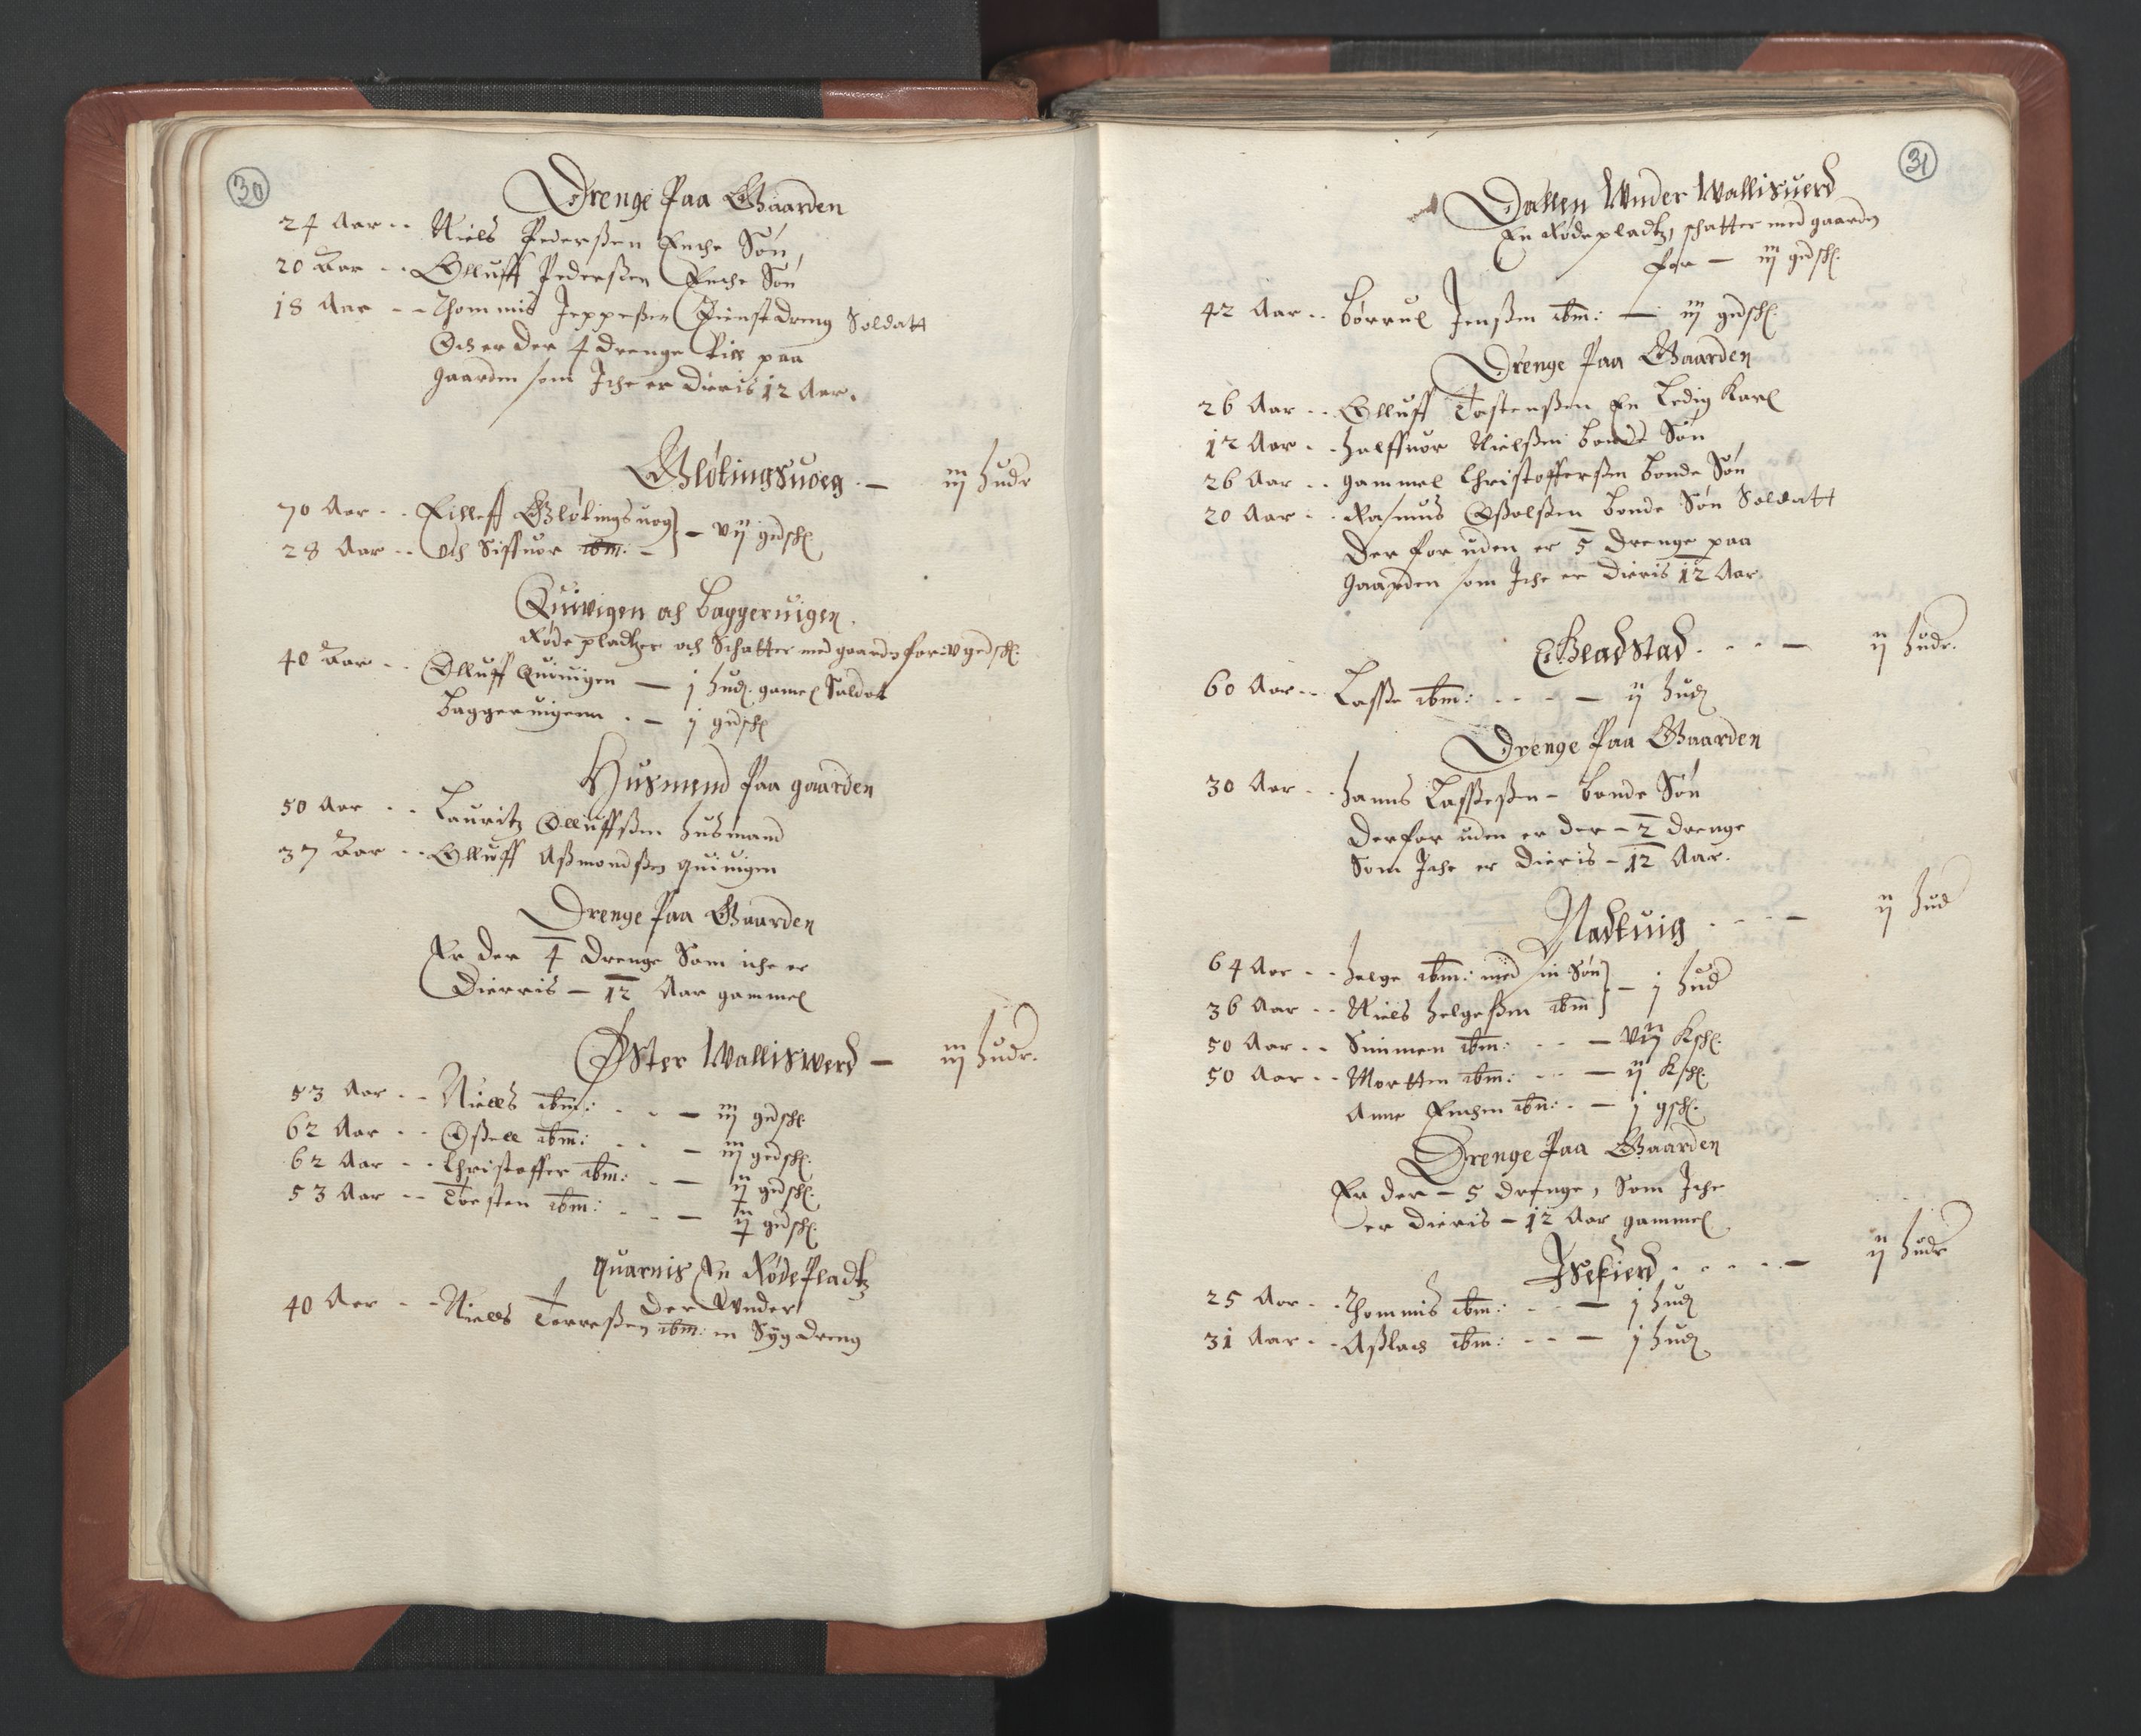 30
Drenge Paa Gaarden
24 Aar -- Niels Pederßen Enche Søn,
20 Aar -- Olluff Pederßen Enche Søn
18 Aar -- Thommis Jeppeßen Tienste dreng Soldatt
Och er der 4 drenge till paa
gaarden som Iche er Dieris 12 Aar.
Gløbingsuoeg . — iij hudr
70 Aar -- Eilleff Gløbings uog
28 Aar -- och Siffuor ibm: — vij gedsch
Quiuigen och Baggeruigen.
Røde pladtzer och Schatter med gaardn for: v gedsch:
40 Aar -- Olluff Quiuigen — j hud: gamel Saldat
Baggeruigenn . — j gedsch
Husmend Paa gaarden
50 Aar -- Lauritz Olluffßen husmand
37 Aar -- Olluff Aßmondßen quiuigen
Drenge Paa Gaarden
Er der 4 drenge Som iche er
Dierris — 12 Aar gammel
Øster Walliswerd — iiij hudr.
53 Aar -- Niells ibm: . . — iij gedsch
62 Aar -- Oßell ibm: . . — iij gedsch:
62 Aar -- Christoffer ibm: . — ij gedsch:
53 Aar -- Torsten ibm: . . — ij gedsch:
quarnis En Røde Pladtz
Der Wnder
40 Aar -- Niells Torreßen ibm: en Syg dreng
31
Dallen Wnder Wallisuerd
En Røde pladtz, schatter med gaardn
for — iij gedsch:
42 Aar -- Børruel Jenßen ibm: — iij gedsch:
Drenge Paa Gaarden
26 Aar -- Olluff Tostenßen En Ledig Karl
12 Aar -- halffuor Nielßen bonde Søn
26 Aar -- gammel Christofferßen bonde Søn
20 Aar -- Rasmus Oßelßen bonde Søn Soldatt
Der for uden er 5 drenge paa
Gaarden som Iche er Dieris 12 Aar
Gladstad . . . — ij hudr.
60 Aar -- Lasße ibm: . . . . — ij hud
Drenge Paa Gaarden
30 Aar -- hanns Laßßeßen — bonde Søn
Derfor uden er der — 2 drenge
Som Iche er Dieris — 12 Aar.
Nadtuig . . . — ij hud
64 Aar -- helge ibm: med sin Søn
36 Aar -- Niels helgeßen ibm — j hud
50 Aar -- Simmen ibm: . . — vij Ksch:
50 Aar -- Mortten ibm: . . — ij Ksch:
Anne Enchen ibm: . — j gsch:
Drenge Paa Gaarden
Er der — 5 drenge, Som Iche
er Dieris — 12 Aar gammel
Isefierd . . . . . — ij hudr
25 Aar -- Thommis ibm: . . — j hud
31 Aar -- Aßlach ibm: . . — j hud